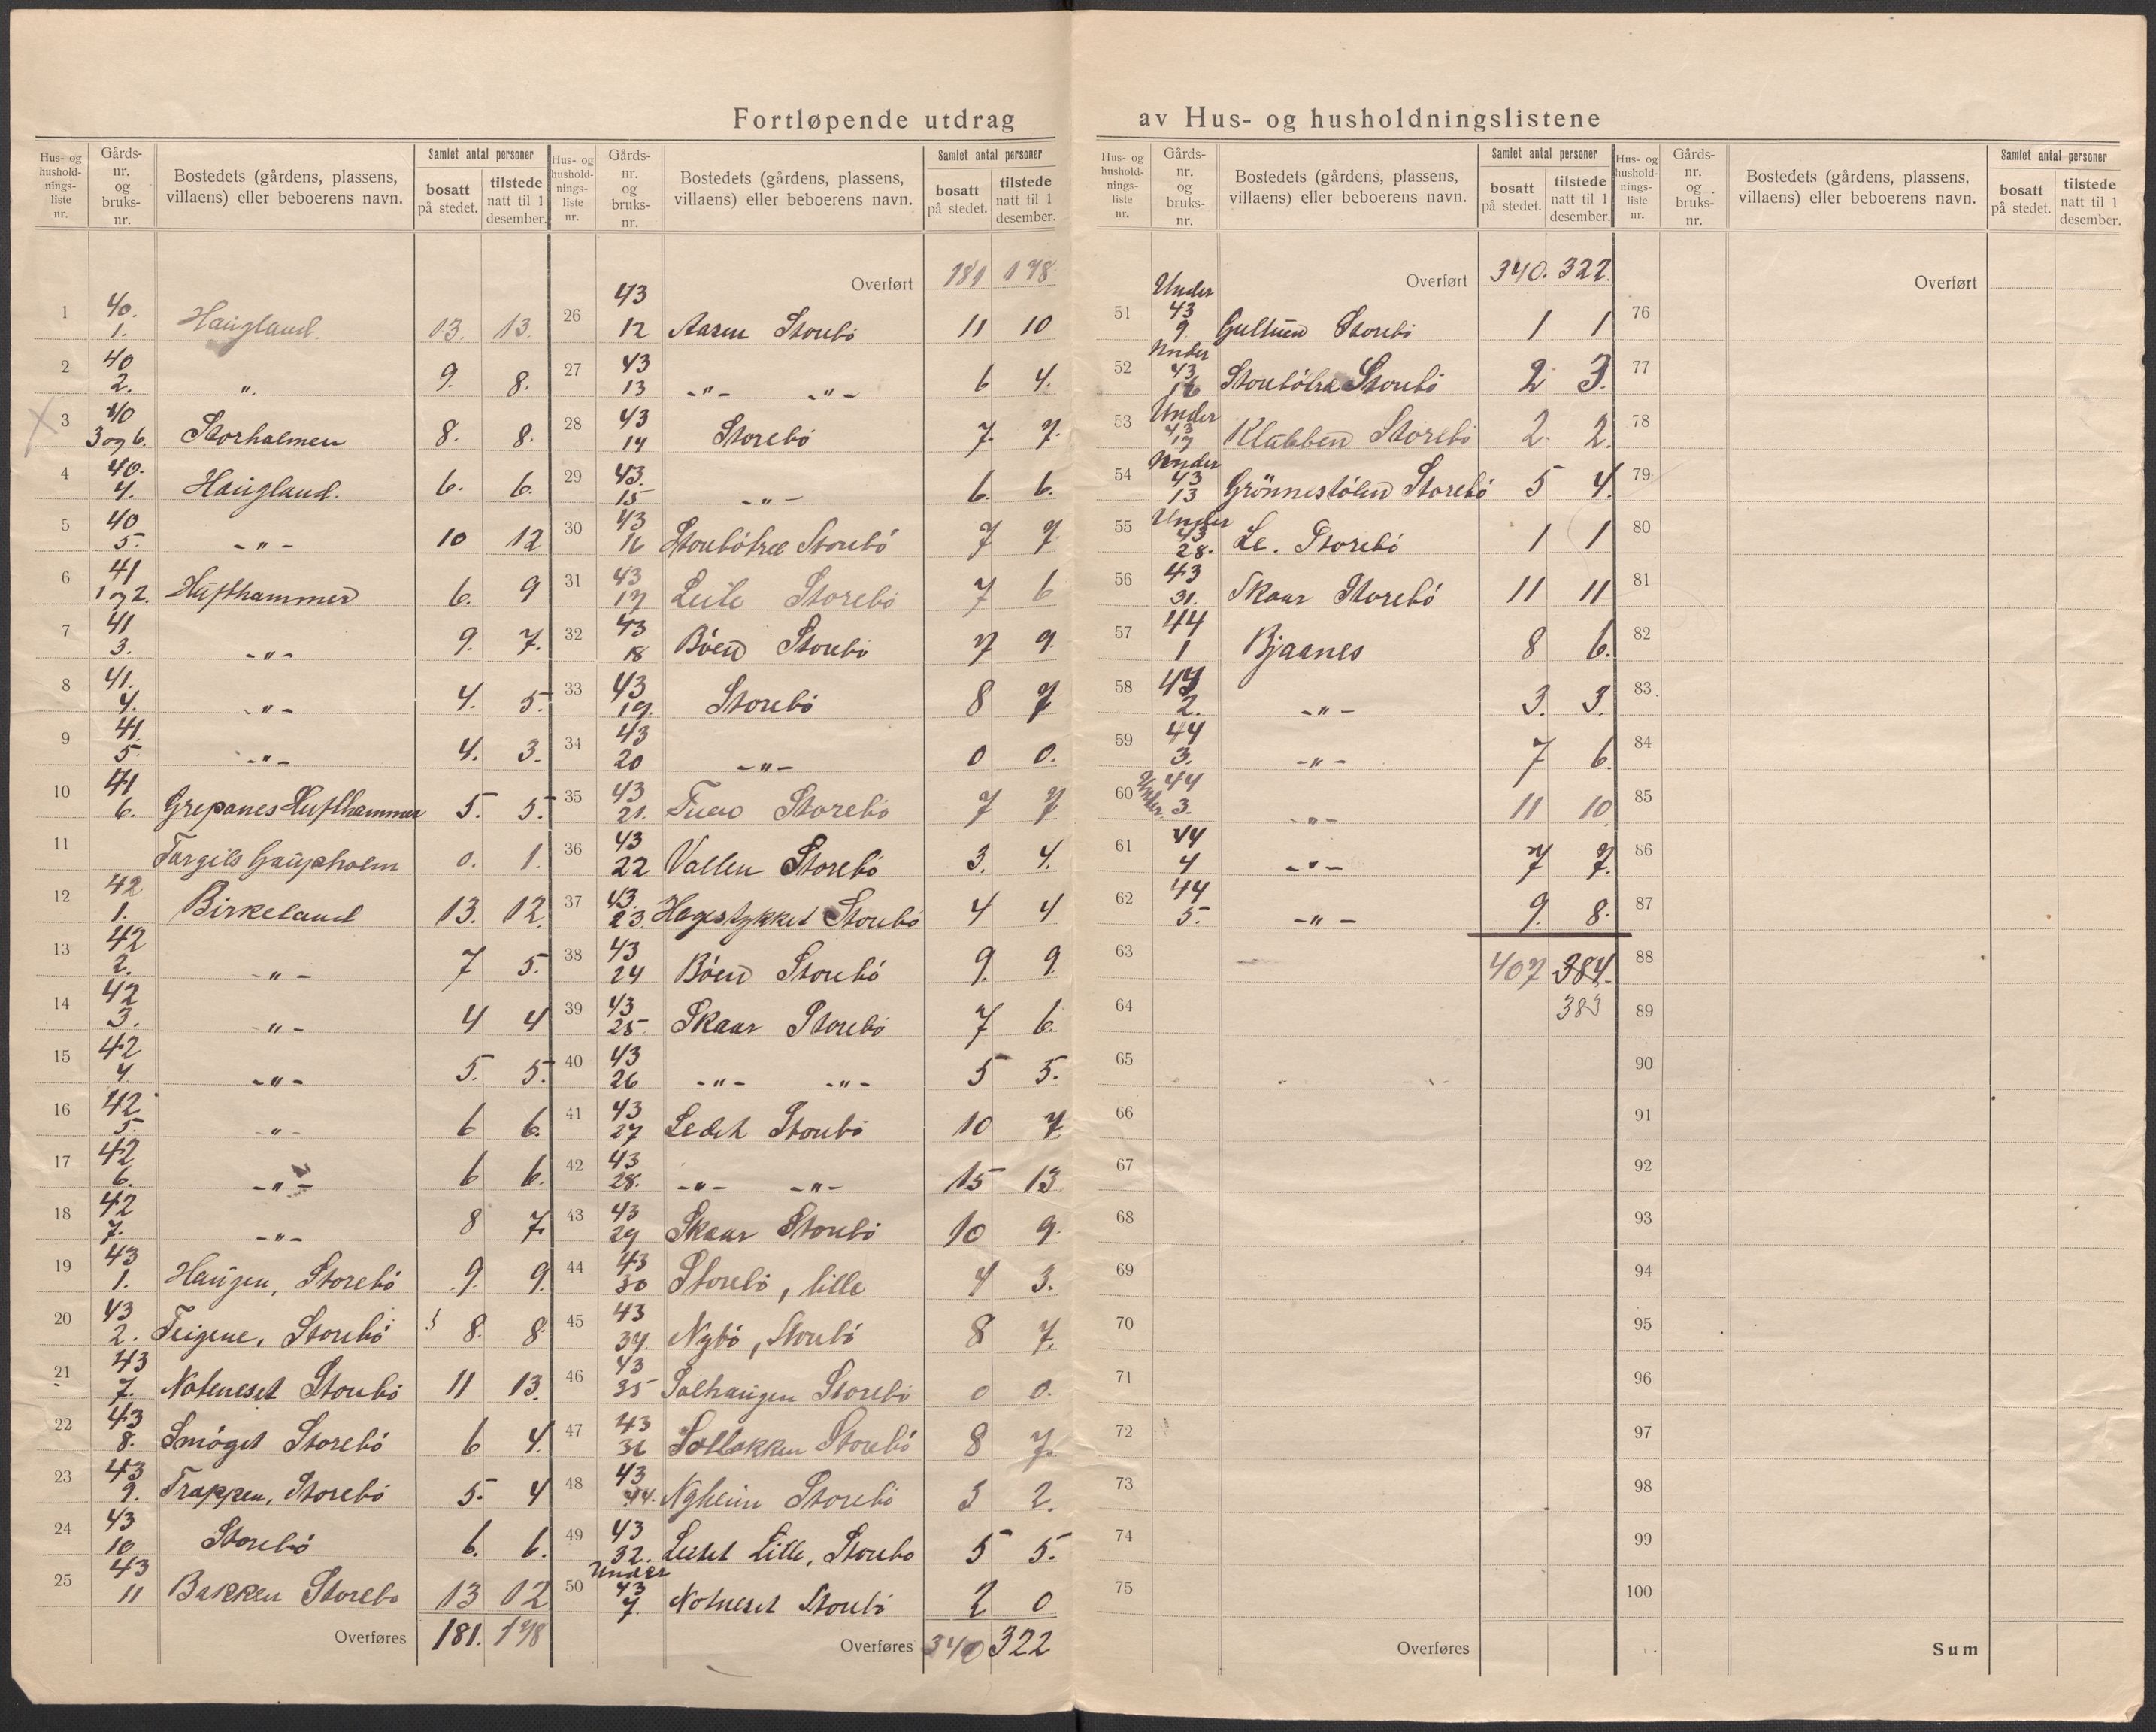 Fortløpende utdrag av Hus- og husholdningslistene
Hus- og hushold-nings-liste nr. Gårds-nr. og bruks-nr. Bostedets (gårdens, plassens, villaens) eller beboerens navn. Samlet antal personer bosatt på stedet. tilstede natt til 1 desember.
1 40. 1. Haugland. 13. 13.
2 40 2. ". 9. 8.
3 40 3 og 6. Storholmen 8. 8.
4 40. 4. Haugland. 6. 6.
5 40 5. -"- 10 12
6 41 1 og 2. Hufthammer 6. 9
7 41 3. -"- 9. 7.
8 41. 4. -"- 4. 5.
9 41. 5. -"- 4. 3.
10 41 6. Grepanes Hufthammer 5. 5.
11 Targils Gaupholm 0. 1.
12 42 1. Birkeland 13. 12.
13 42 2. -"- 7 5.
14 42 3. -"- 4 4
15 42 4. -"- 5. 5.
16 42 5. -"- 6 6.
17 42 6. -"- 6 6.
18 42 7. -"- 8 7.
19 43 1. Haugen, Storebö 9. 9.
20 43 2. Teigene, Storebö 8. 8.
21 43 7. Noteneset Storebö 11 13.
22 43 8. Smöget Storebö 6 4.
23 43 9. Trappen, Storebö 5. 4
24 43 10 Storebö 6. 6.
25 43 11 Bakken Storebo 13 12
Overføres 181. 178
Hus- og hushold-nings-liste nr. Gårds-nr. og bruks-nr. Bostedets (gårdens, plassens, villaens) eller beboerens navn. Samlet antal personer bosatt på stedet. tilstede natt til 1 desember.
Overført 181 178
26 43 12 Aasen Storebö 11 10
27 43 13 -"- -"- 6 4.
28 43 14 Storebö 7. 7.
29 43. 15 -"- 6. 6.
30 43 16 Storebötræ Storebö 7 7
31 43 17 Leite Storebö 7 6
32 43 18 Böen Storebö 7 9.
33 43 19. Storebö 8 7
34 43 20 -"- 0 0.
35 43 21. Tuen Storebö 7 7
36 43 22 Vallen Storebö 3. 4.
37 43. 23. Hagestykket Storebö 4 4
38 43 24 Böen Storebö 9. 9.
39 43 25. Skaar Storebö 7 6.
40 43 26 -"- -"- 5 5.
41 43 27 Ledet Storebö 10 7
42 43 28. -"- -"- 15 13
43 43 29 Skaar Storebö 10 9.
44 43 30 Storebö, lille 4 3.
45 43 34. Nybö, Storebö 8 7.
46 43 35 Solhaugen Storebö 0 0.
47 43 36 Solbakken Storebö 8 7.
48 43 44. Nyheim Storebö 3 2.
49 43 32. Leitet Lille, Storebo 5 5.
50 Under 43 7. Notneset Storebö 2 0
Overføres 340 322
Hus- og hushold-nings-liste nr. Gårds-nr. og bruks-nr. Bostedets (gårdens, plassens, villaens) eller beboerens navn. Samlet antal personer bosatt på stedet. tilstede natt til 1 desember.
Overført 340. 322.
51 Under 43 9. Storebö 1 1
52 Under 43 16 Storebötræ Storebö 2 3.
53 Under 43 17 Klubben Storebö 2. 2.
54 Under 43 13 Grönnestölen Storebö 5 4.
55 Under 43 28. Le. Storebö 1 1
56 43 31. Skaar Storebö 11 11
57 44 1 Bjaanes 8 6.
58 44 2. -"- 3. 3.
59 44 3. -"- 7 6.
60 Under 44 3. -"- 11 10
61 44 4 -"- 7 7.
62 44 5. -"- 9. 8.
63 407 384.
64 383
65
66
67
68
69
70
71
72
73
74
75
Overføres
Hus- og hushold-nings-liste nr. Gårds-nr. og bruks-nr. Bostedets (gårdens, plassens, villaens) eller beboerens navn. Samlet antal personer bosatt på stedet. tilstede natt til 1 desember.
Overført
76
77
78
79
80
81
82
83
84
85
86
87
88
89
90
91
92
93
94
95
96
97
98
99
100
Sum